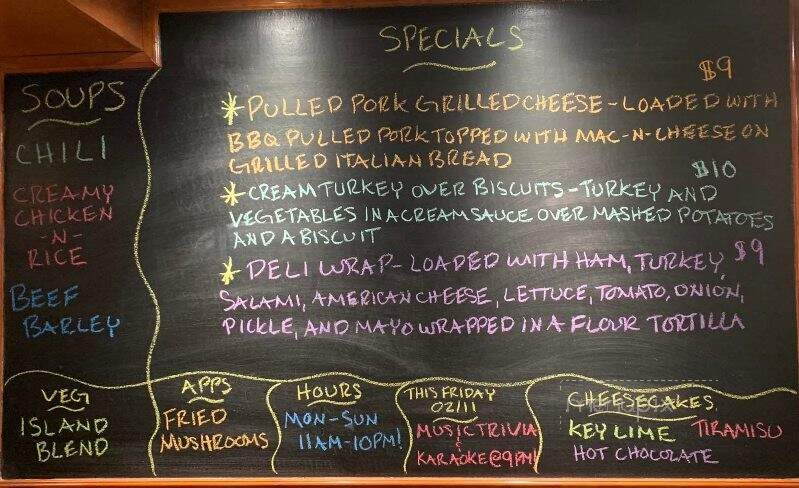 SPECIALS
SOUPS
CHILI
CREAMY
CHICKEN
-N-
RICE
BEEF
BARLEY
$9
*PULLED PORK GRILLED CHEESE - LOADED WITH
BBQ PULLED PORK TOPPED WITH MAC-N-CHEESE ON
GRILLED ITALIAN BREAD
$10
*CREAM TURKEY OVER BISCUITS - TURKEY AND
VEGETABLES IN A CREAM SAUCE OVER MASHED POTATOES
AND A BISCUIT
*DELI WRAP - LOADED WITH HAM, TURKEY, $9
SALAMI, AMERICAN CHEESE, LETTUCE, TOMATO, ONION,
PICKLE, AND MAYO WRAPPED IN A FLOUR TORTILLA
VEG
ISLAND
BLEND
APPS
FRIED
MUSHROOMS
HOURS
MON-SUN
11AM-10PM!
THIS FRIDAY
02/11
MUSIC TRIVIA
&
KARAOKE@9PM!
CHEESECAKES
KEY LIME TIRAMISU
HOT CHOCOLATE